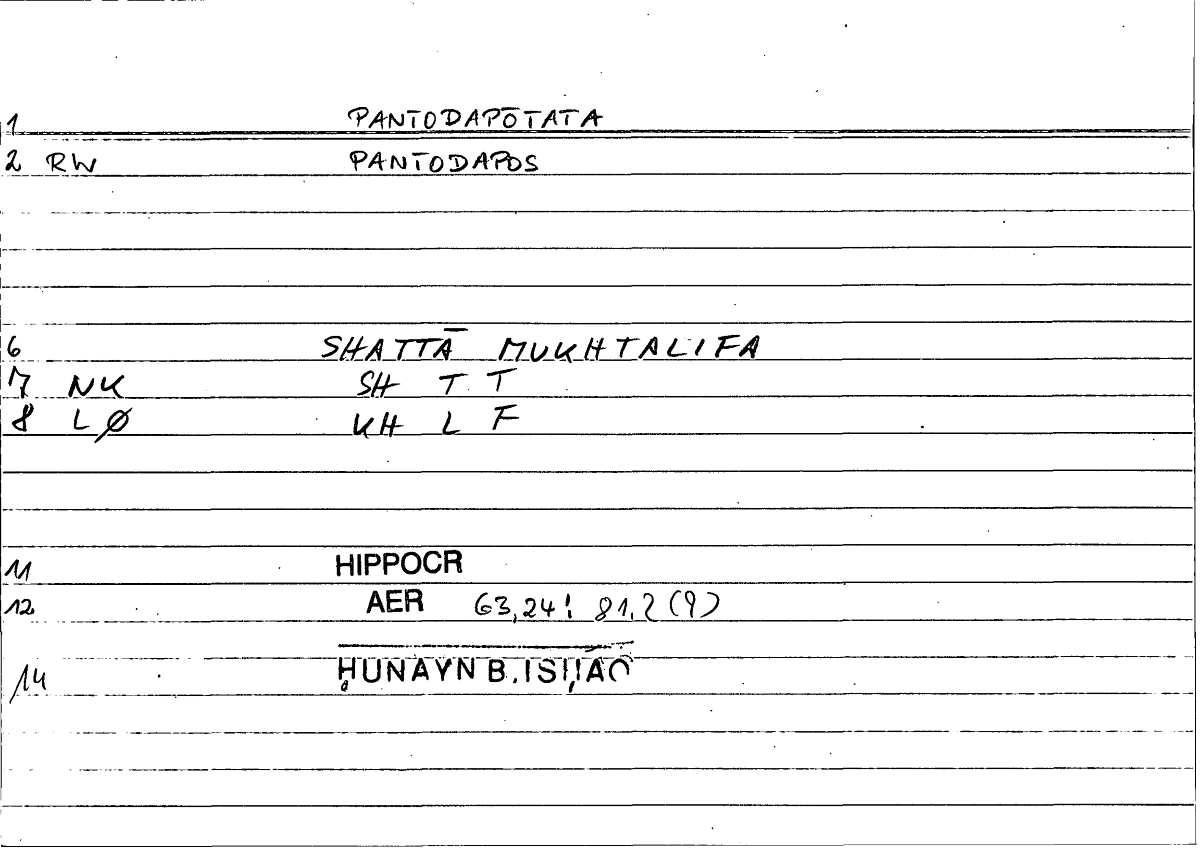 1 PANTODAPŌTATA
2 RW PANTODAPOS
6 SHATTĀ MUKHTALIFA
7 NK SH T T
8 LØ KH L F
11 HIPPOCR
12 AER 63,24; 81,2 (9)
14 ḤUNAYN B. ISḤĀQ